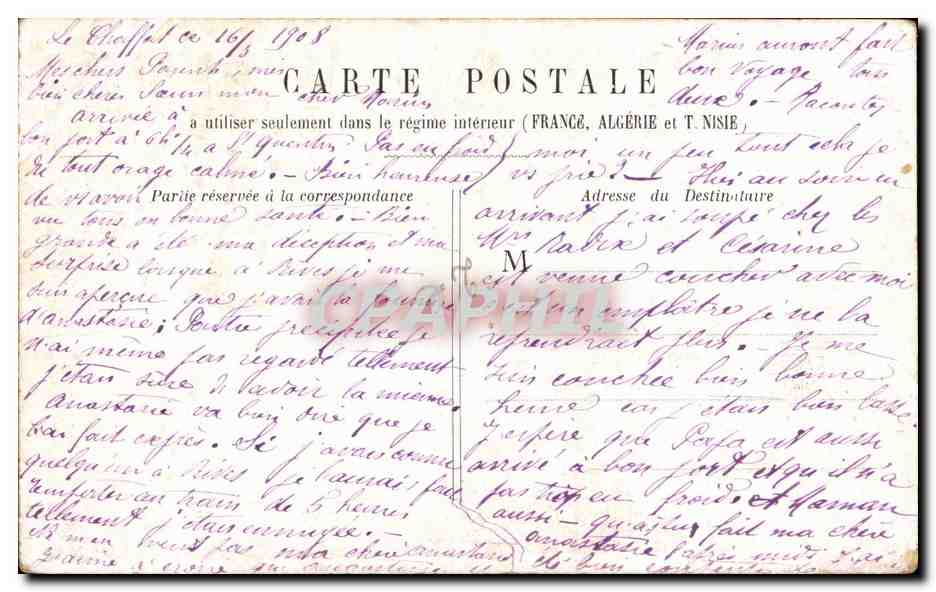 Le Chaffal ce 16/3 1908
Mes chers Parents, mes
bien chères Sœurs mon cher Marius
arrivée à
bon port à 6h 1/4 à St Quentin Pas eu froid
du tout orage calmé. - Bien heureuse
de vs avoir
vu tous en bonne santé. - Bien
grande a été ma déception et ma
surprise lorsque à Rives je me
suis aperçue que j'avais la
d'anastasie; Partie précipitée je
n'ai même pas regardé tellement
j'étais sûre d'avoir la mienne.
Anastasie va bien dire que je
l'ai fait exprès. Si j'avais connu
quelqu'un à Rives je l'aurais fait
remporter au train de 5 heures
tellement j'étais ennuyée. -
m'en veux pas ma chère anastasie
CARTE POSTALE
a utiliser seulement dans le régime intérieur (FRANCE, ALGÉRIE et T.NISIE)
Partie réservée à la correspondance
Adresse du Destinataire
M
CPAPHIL
Marius auront fait
bon voyage tous
deux. - Racontez
moi un peu tout cela je
vs prie. - Hier au soir en
arrivant j'ai soupé chez les
Mrs Radix et Césarine
est venue coucher avec moi
emplâtre je ne la
reprendrait plus. - Je me
suis couchée bien bonne
heure car j'étais bien lasse
J'espère que Papa est aussi
arrivé à bon port et qu'il n'a
pas trop eu froid. et Maman
aussi - qu'as tu fait ma chère
anastasie l'après midi
de bon